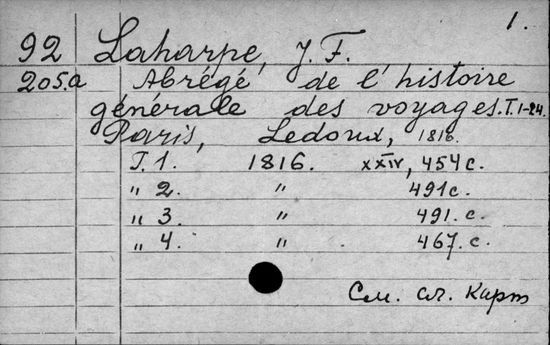 1.
92 Laharpe, J. F.
205.a Abrégé de l'histoire
générale des voyages. T. 1-24.
Paris, Ledoux, 1816.
T. 1. 1816. XXIV, 454 с.
" 2. " 491 с.
" 3. " 491. с.
" 4. " 467. с.
См. сл. карт